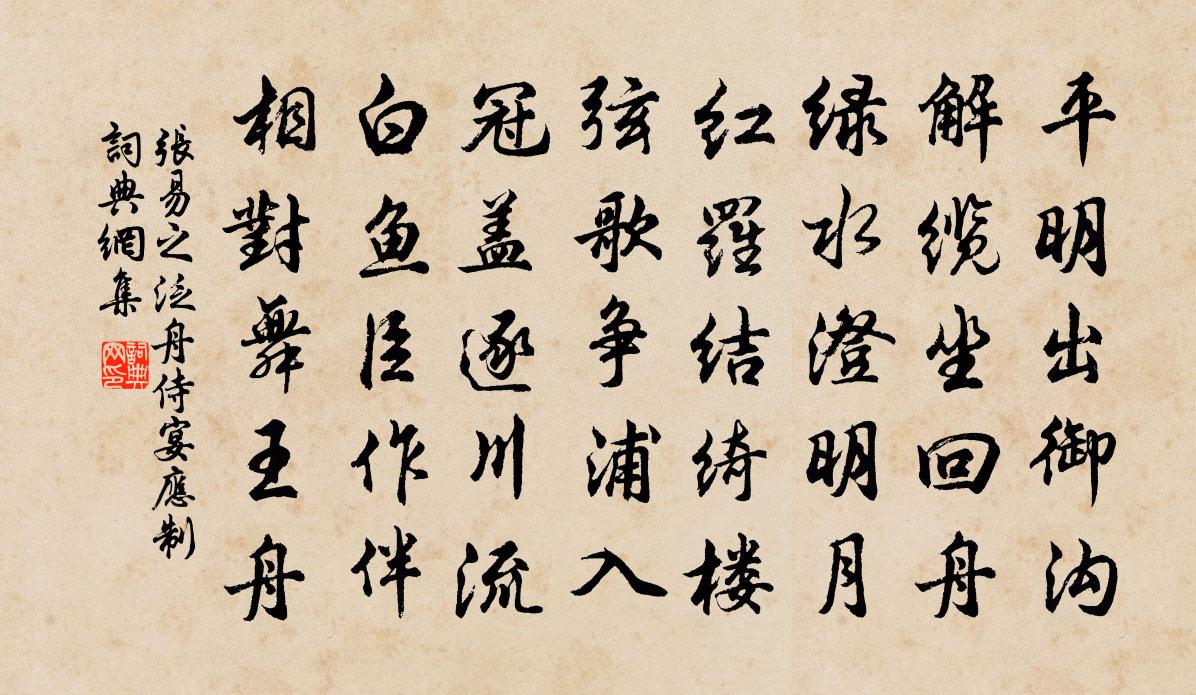 平明出御沟
解缆坐回舟
绿水澄明月
红羅结绮楼
弦歌争浦入
冠盖逐川流
白鱼臣作伴
相對舞王舟
張易之泛舟侍宴應制
詞典網集
詞典网印